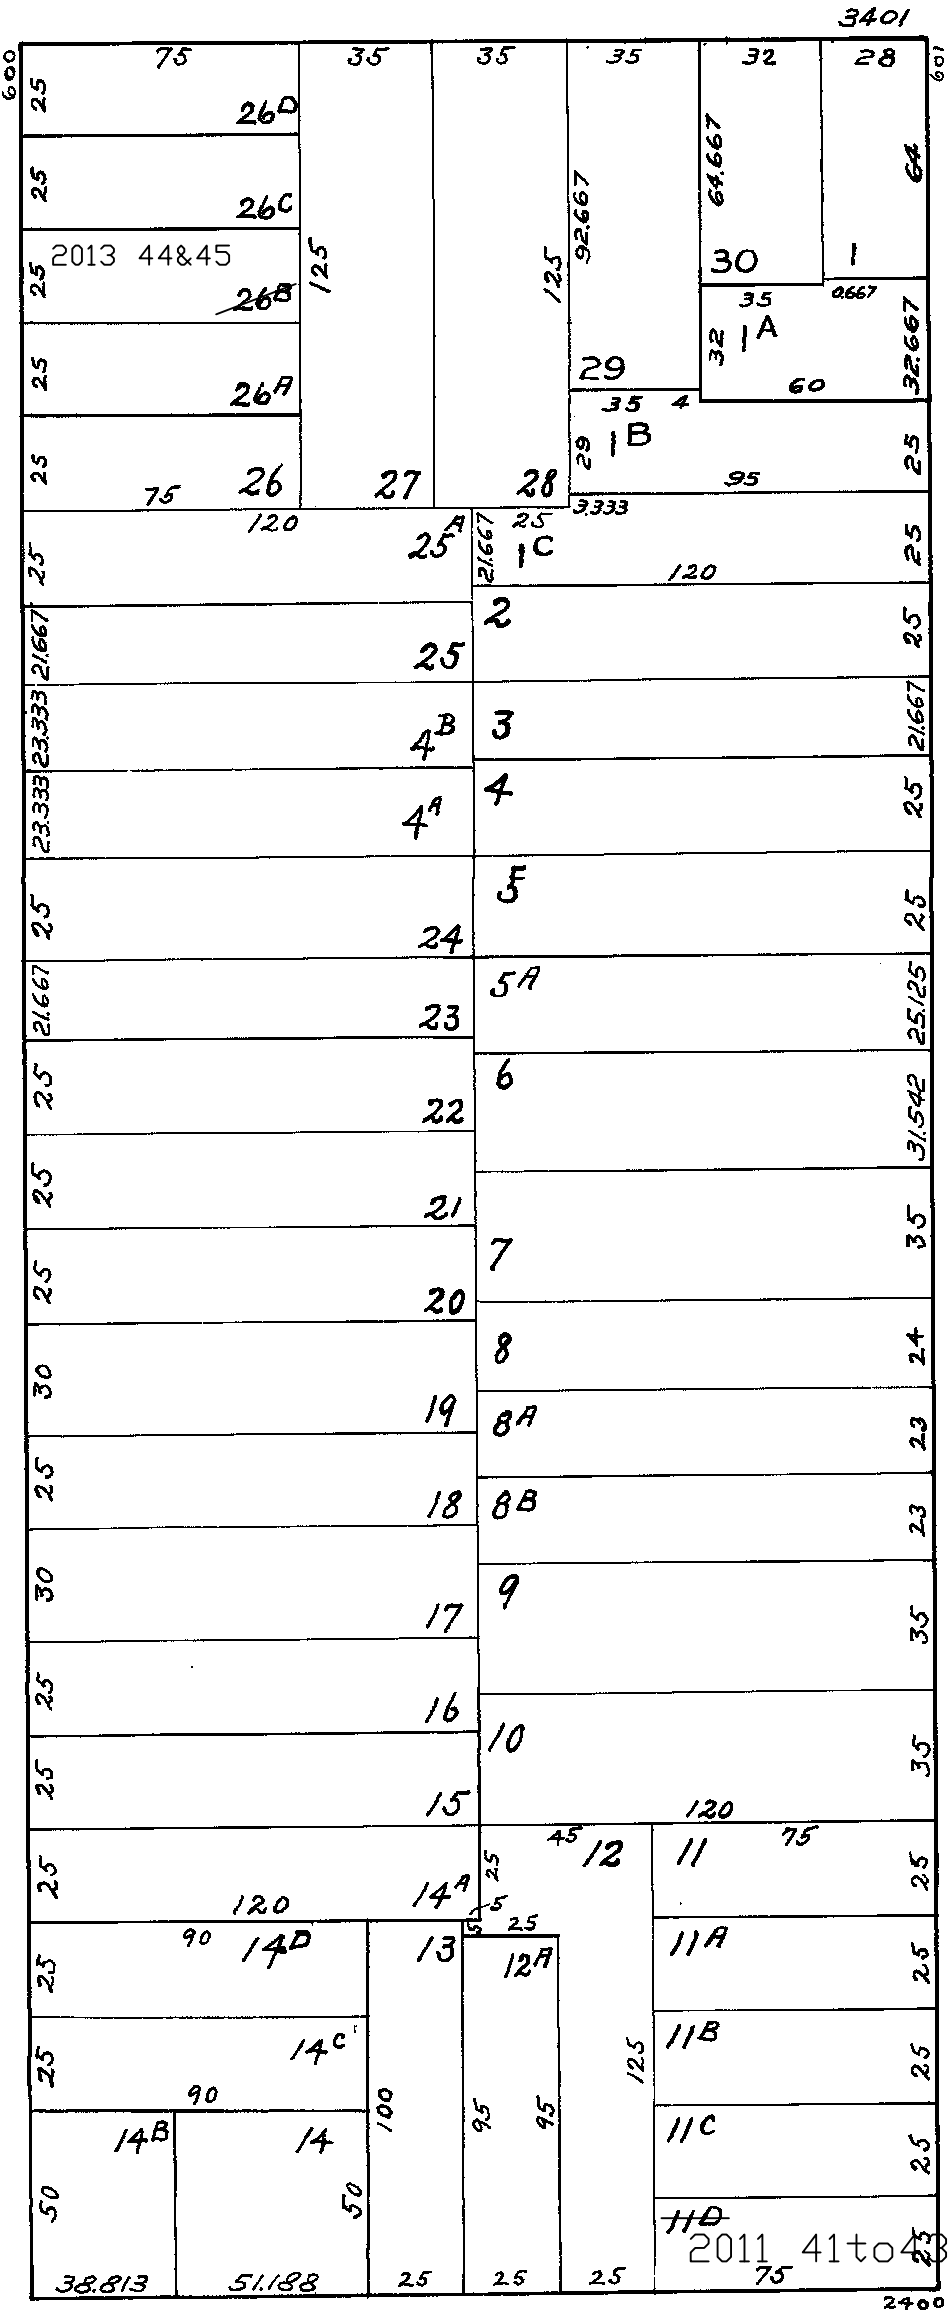 3401
600
601
75 35 35 35 32 28
25
26D
25
26C
2013 44&45
25
26B
25
26A
25
75
26
125
27
125
28
92.667
29
64.667
30
64
1
0.667
35
32
1A
32.667
60
35 4
29
1B
25
95
3.333
120
25
25A
21.667
25
1C
25
120
21.667
25
2
25
23.333
4B
3
21.667
23.333
4A
4
25
25
24
5
25
21.667
23
5A
25.125
25
22
6
31.542
25
21
7
35
25
20
8
24
30
19
8A
23
25
18
8B
23
30
17
9
35
25
16
10
35
25
15
120
25
120
14A
25
45
12
11
75
25
5
5
25
90
14D
25
13
12A
11A
25
14C
25
90
125
11B
25
100
95
95
14B
14
50
50
11C
25
11D
2011 41to43
25
38.813 51.188 25 25 25 75
2400